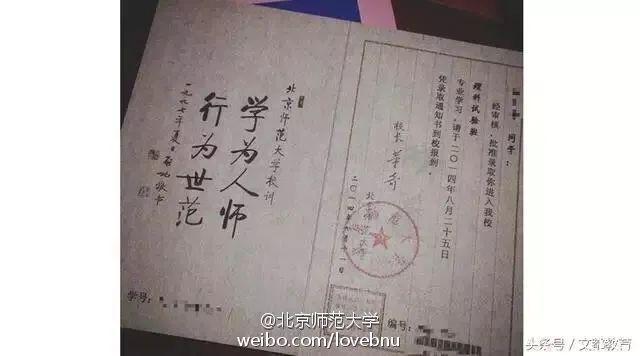 同学：
经审核，批准录取你进入我校
理科试验班
专业学习。请于二〇一四年八月二十五日
凭录取通知书到校报到。
校长 董奇
北京师范大学
二〇一四年
编号：
北京师范大学校训
学为人师
行为世范
一九九七年夏日 启功敬书
学号：
@北京师范大学
weibo.com/lovebnu
头条号 / 文都教育